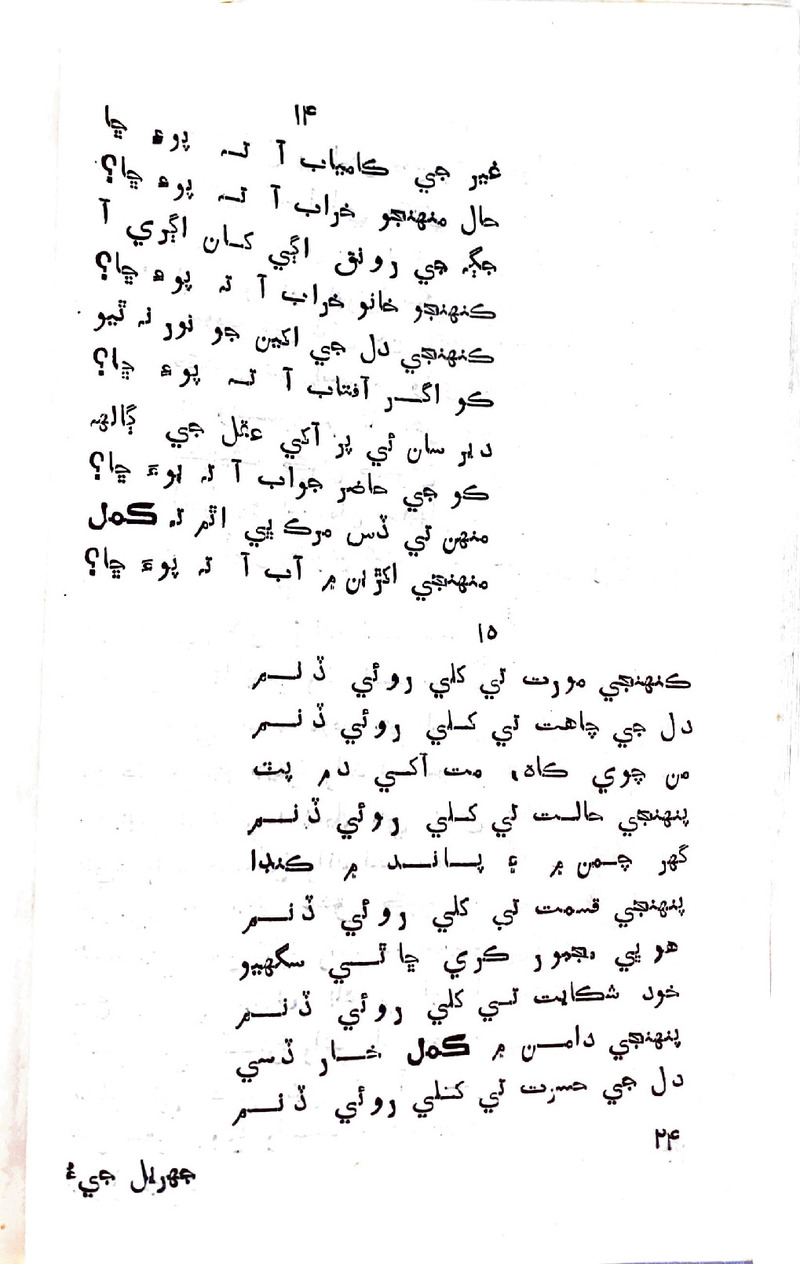 ۱۴
غير جي ڪامياب آ تہ پوءِ ڇا
حال منهنجو خراب آ تہ پوءِ ڇا؟
جڳہ جي رونق اڳي کان اڳري آ
ڪنهنجو خانو خراب آ تہ پوءِ ڇا؟
ڪنهنجي دل جي اکين جو نور نہ ٿيو
ڪو اگر آفتاب آ تہ پوءِ ڇا؟
دير سان ئي پر آکي عقل جي ڳالهہ
ڪو جي حاضر جواب آ تہ پوءِ ڇا؟
منهن تي ڏس مرڪ پي اٿم تہ ڪمل
منهنجي اکڙين ۾ آب آ تہ پوءِ ڇا؟
۱۵
ڪنهنجي مورت تي کلي روئي ڏنم
دل جي چاهت تي کلي روئي ڏنم
من چوي ڪاھ، مت آکي دم پٽ
پنهنجي حالت تي کلي روئي ڏنم
گهر چمن ۾ ۽ پاند ۾ ڪنڊا
پنهنجي قسمت تي کلي روئي ڏنم
هو پي مجبور ڪري ڇا ٿي سگهيو
خود شڪايت تي کلي روئي ڏنم
پنهنجي دامن ۾ ڪمل خار ڏسي
دل جي حسرت تي کلي روئي ڏنم
۲۴
جهريل جيءُ